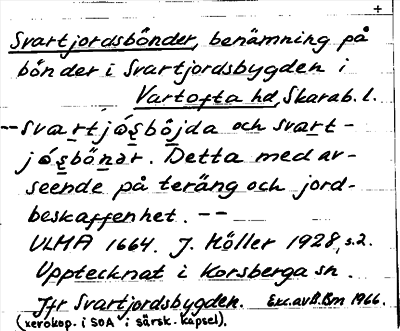 +
Svartjordsbönder, benämning på
bönder i Svartjordsbygden i
Vartofta hd, Skarab. l.
-- svartjǫ́s̱bö̱jda och svart-
jǫ́s̱bö̱nər. Detta med av-
seende på teräng och jord-
beskaffenhet. --
ULMA 1664. J. Höller 1928, s.2.
Upptecknat i Korsberga sn.
Jfr Svartjordsbygden. Exc.av B.Bm 1966.
(xerokop. i SOA i särsk. kapsel).